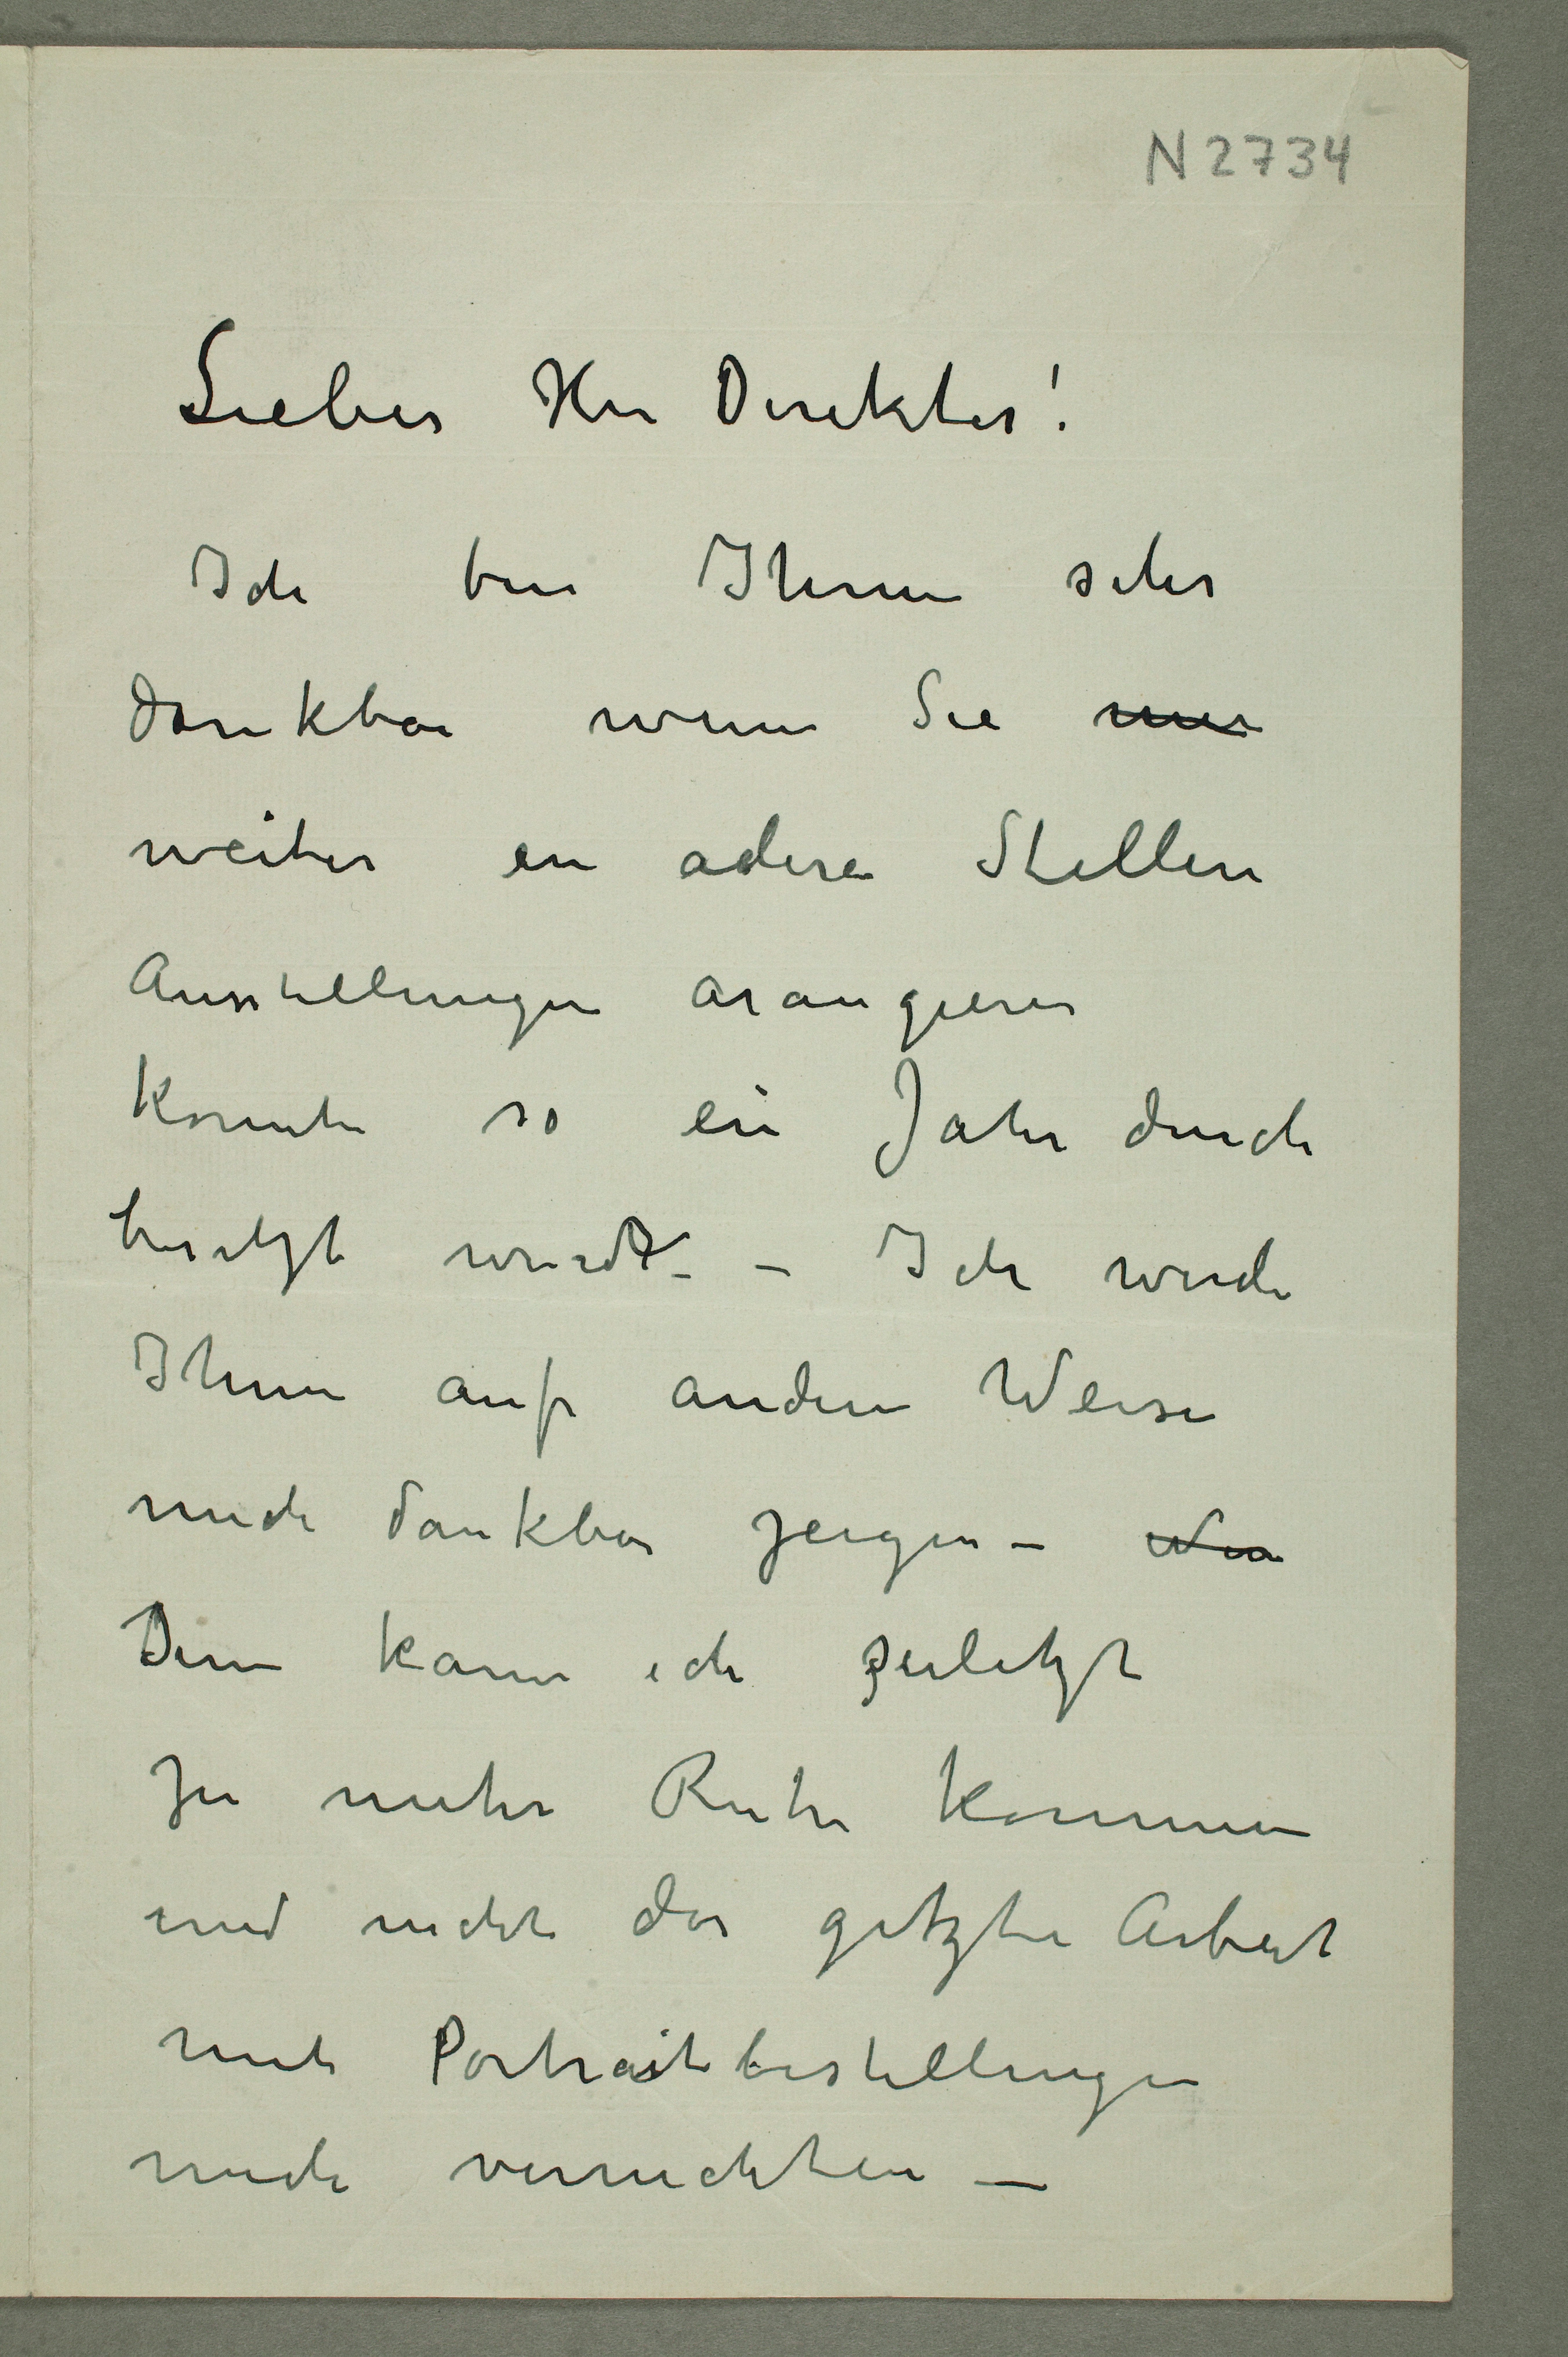 N 2734
Lieber Herr Direktor!
Ich bin Ihnen sehr
dankbar wenn Sie mir
weiter en adere Stellen
Ausstellungen arangieren
konnte so ein Jahr durch
besetzt wird – Ich werde
Ihnen auf andere Weise
mich dankbar zeigen –
Denn kann ich zuletzt
zu mehr Ruhe kommen
und nicht das Arbeit
mit Portraitbestellungen
mich vernichten –